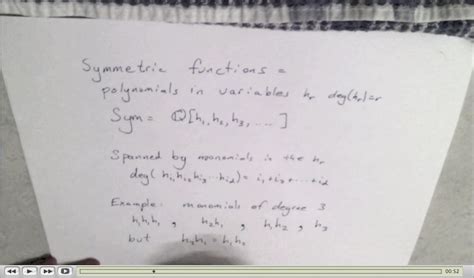 Symmetric functions =
polynomials in variables hr deg(hr)=r
Sym = Q[h1, h2, h3, .....]
Spanned by monomials in the hr
deg( hi1 hi2 hi3 ... hid) = i1+i2+...+id
Example: monomials of degree 3
h1h1h1 , h2h1 , h1h2 , h3
but h2h1 = h1h2
00:52